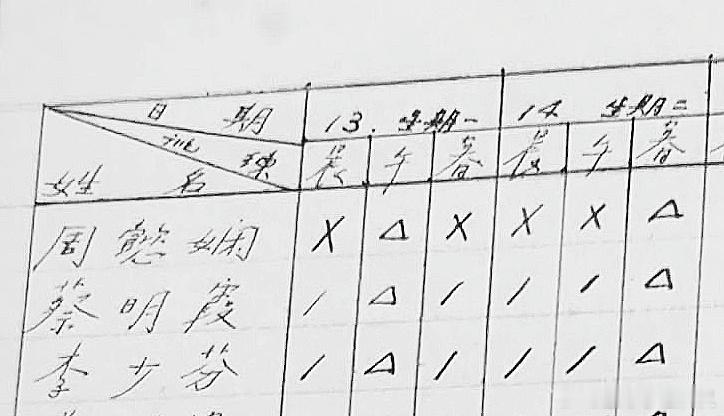 日 期 13. 星期一 14 星期二
训 练
姓 名 晨 午 春 晨 午 春
周懿娴 X △ X X X △
蔡明霞 / △ / / / △
李少芬 / △ / / / △